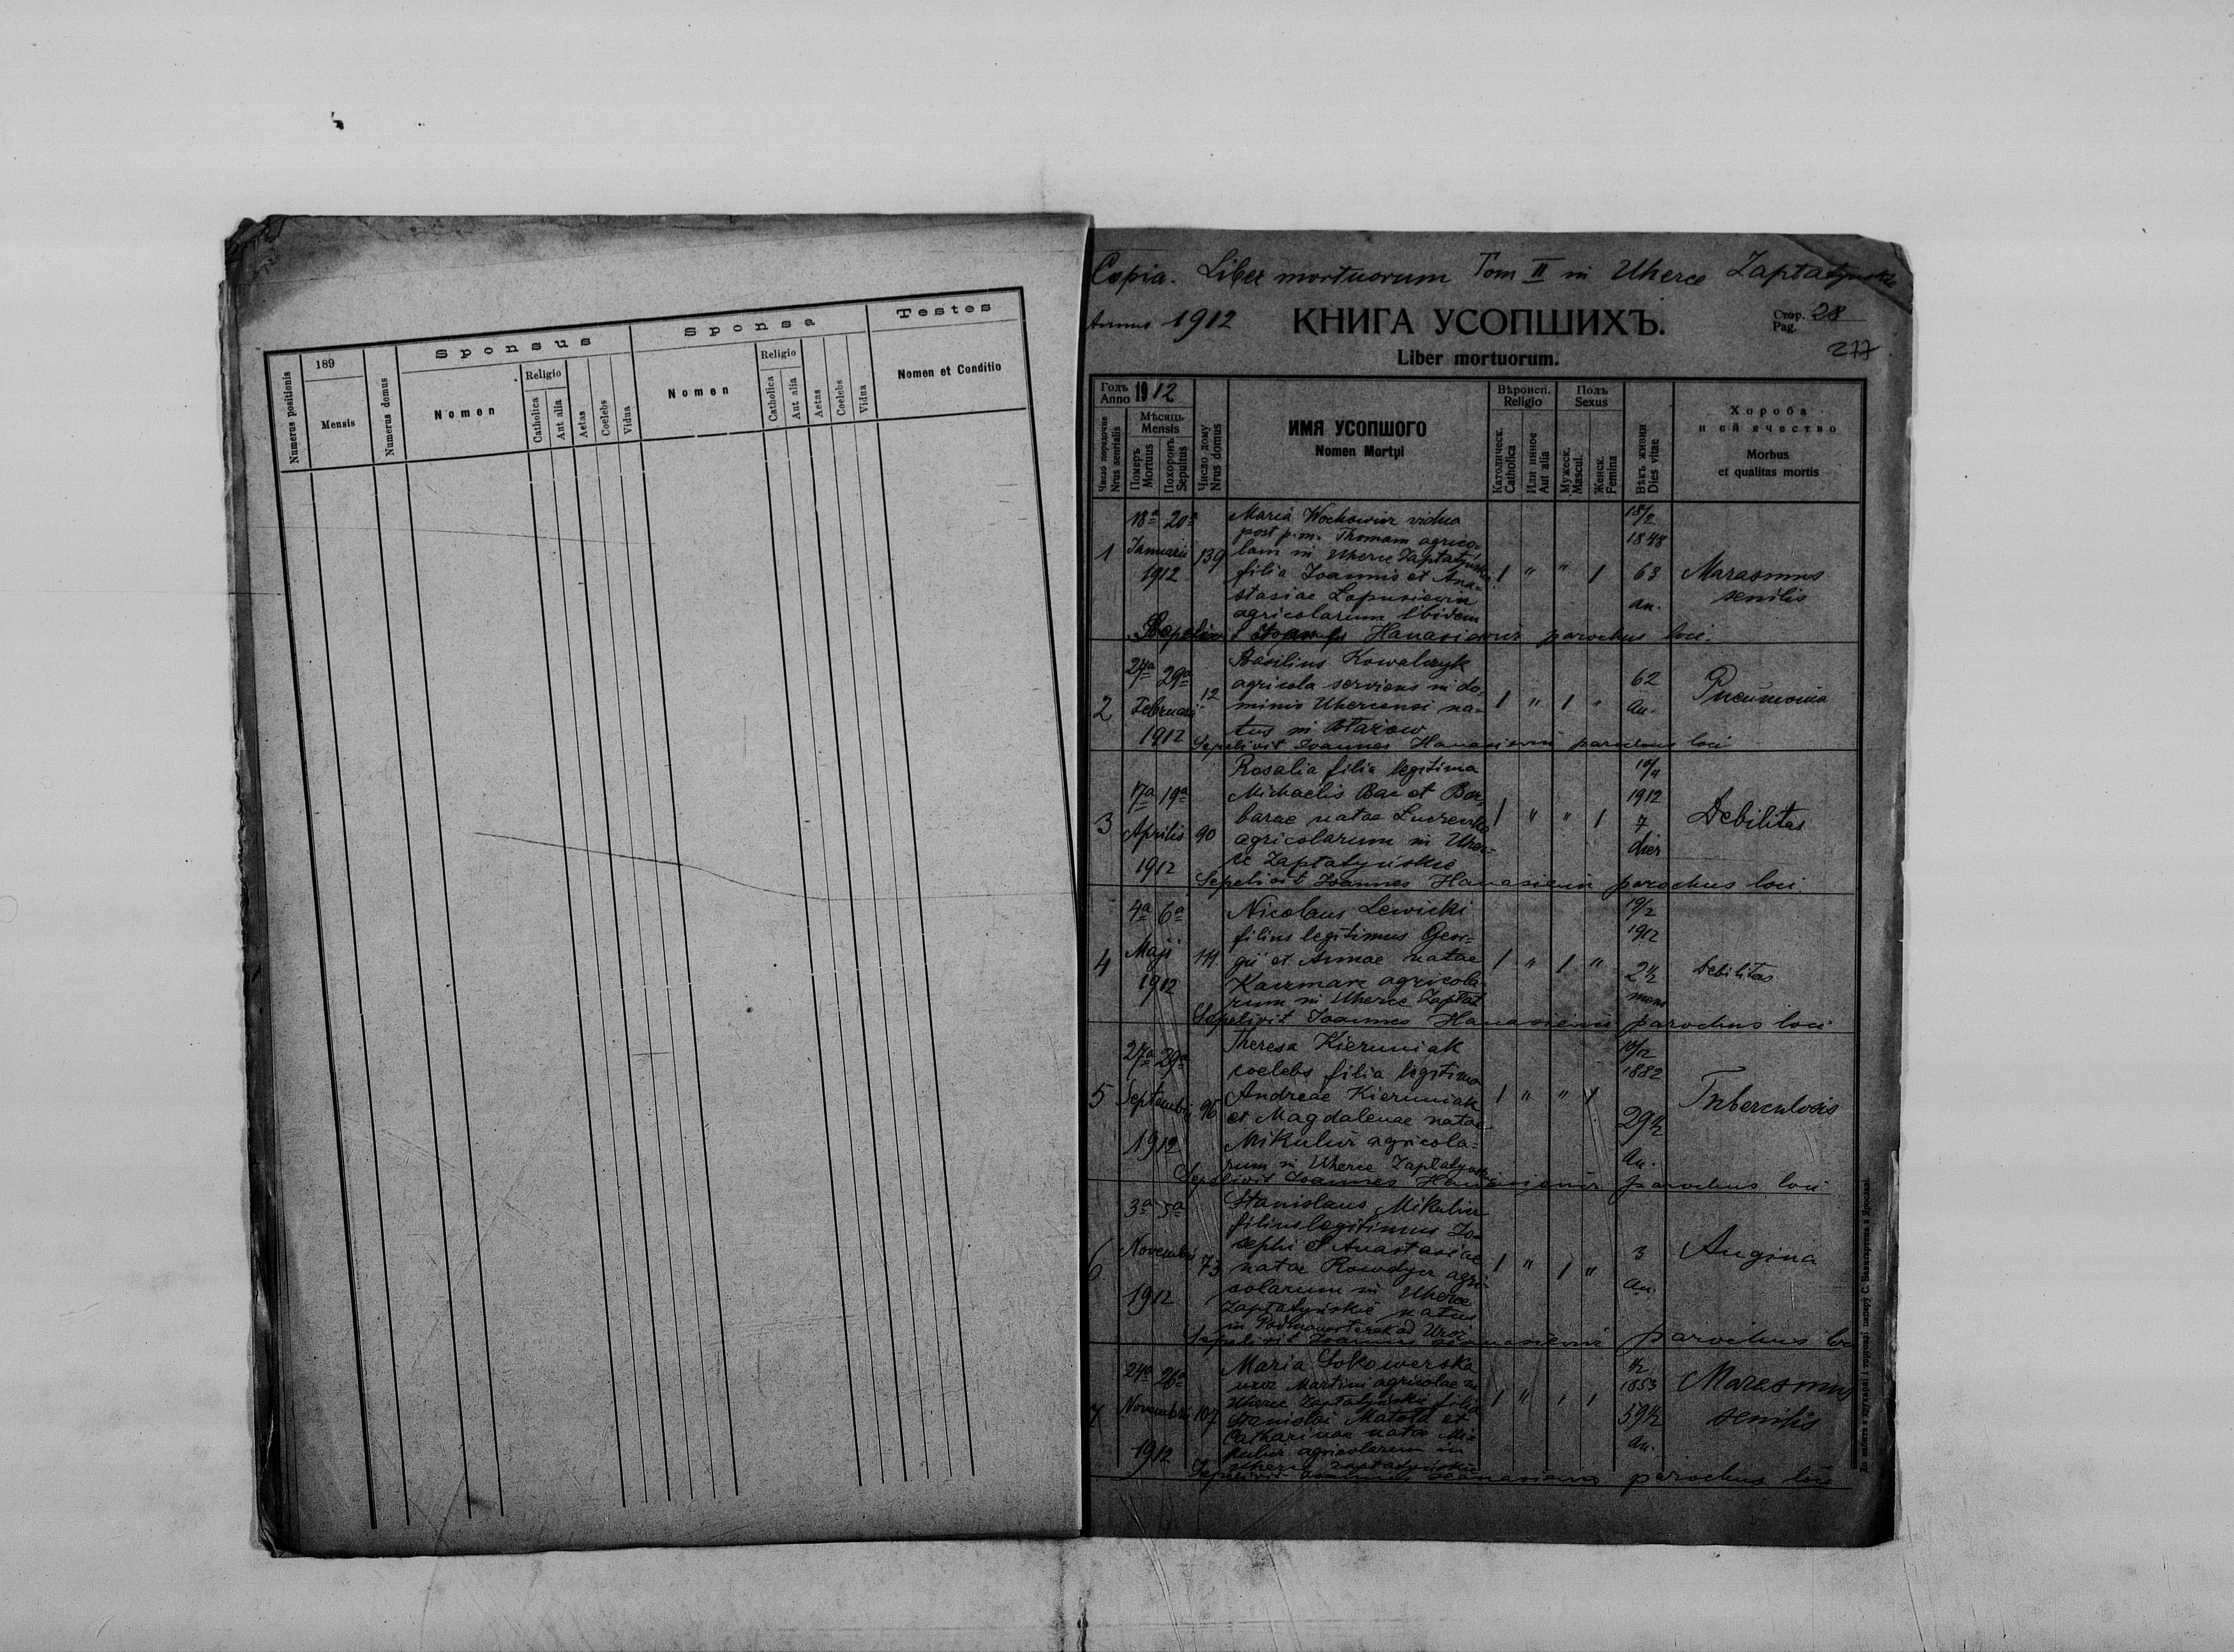 Sponsus
Sponsa
Testes
Numerus positionis
189
Mensis
Numerus domus
Nomen
Religio
Catholica
Aut alia
Aetas
Coelebs
Vidua
Nomen
Religio
Catholica
Aut alia
Aetas
Coelebs
Vidua
Nomen et Conditio
Copia. Liber mortuorum Tom II in Uherce Zapłatyńskie
Annus 1912
КНИГА УСОПШИХЪ.
Liber mortuorum.
Стор. 28
Pag.
277
Годъ 1912
Anno
Число порядочне
Nrus senrialis
Мѣсяць
Mensis
Померъ
Mortuus
Похоронъ
Sepultus
Число дому
Nrus domus
ИМЯ УСОПШОГО
Nomen Mortui
Вѣроисп.
Religio
Католическ.
Catholica
Или инное
Aut alia
Полъ
Sexus
Мужеск.
Mascul.
Женск.
Femina
Вѣкъ жизни
Dies vitae
Хороба
и ей ячество
Morbus
et qualitas mortis
1
18a 20a
Januarii
1912
139
Maria vidua
post p. m. Thomam agrico-
lam in Uherce Zapłatyńskie
filia Joannis et Ana-
stasiae
agricolarum ibidem
1 " " 1
18/2
1848
63
an.
Marasmus
senilis
Hanasiewicz parochus loci.
2
27a 29a
Februarii
1912
12
Basilius Kowalczyk
agricola serviens in do-
minio Uhercensi na-
tus in
1 " 1 "
62
an.
Pneumonia
Sepelivit Joannes Hanasiewicz parochus loci
3
17a 19a
Aprilis
1912
90
Rosalia filia legitima
Michaelis Bac et Bar-
barae natae
agricolarum in Uher-
ce Zapłatyńskie
1 " " 1
1912
7
dies
Debilitas
Sepelivit Joannes Hanasiewicz parochus loci
4
4a 6a
Maji
1912
111
Nicolaus Lewicki
filius legitimus Geor-
gii et Annae natae
Kaczmarz agricola-
rum in Uherce Zapłat
1 " 1 "
19/2
1912
2½
mens
Debilitas
Sepelivit Joannes Hanasiewicz parochus loci
5
27a 29a
Septembris
1912
96
Theresa Kieruniak
coelebs filia legitima
Andreae Kieruniak
et Magdalenae natae
Mikulicz agricola-
rum in Uherce Zapłatyńskie
1 " " 1
10/12
1882
29½
an.
Tuberculosis
Sepelivit Joannes Hanasiewicz parochus loci
6
3a 5a
Novembris
1912
73
Stanislaus Mikulicz
filius legitimus Jo-
sephi et Anastasiae
natae agri-
colarum in Uherce
Zapłatyńskie natus
in
1 " 1 "
3
an.
Angina
Sepelivit Joannes Hanasiewicz parochus loci
7
24a 26a
Novembris
1912
107
Maria
uxor Martini agricolae in
Uherce Zapłatyńskie filia
Stanislai et
Catharinae natae Mi-
kulicz agricolarum in
Uherce Zapłatyńskie
1 " 1 1
1853
59½
an.
Marasmus
senilis
Sepelivit Joannes Hanasiewicz parochus loci